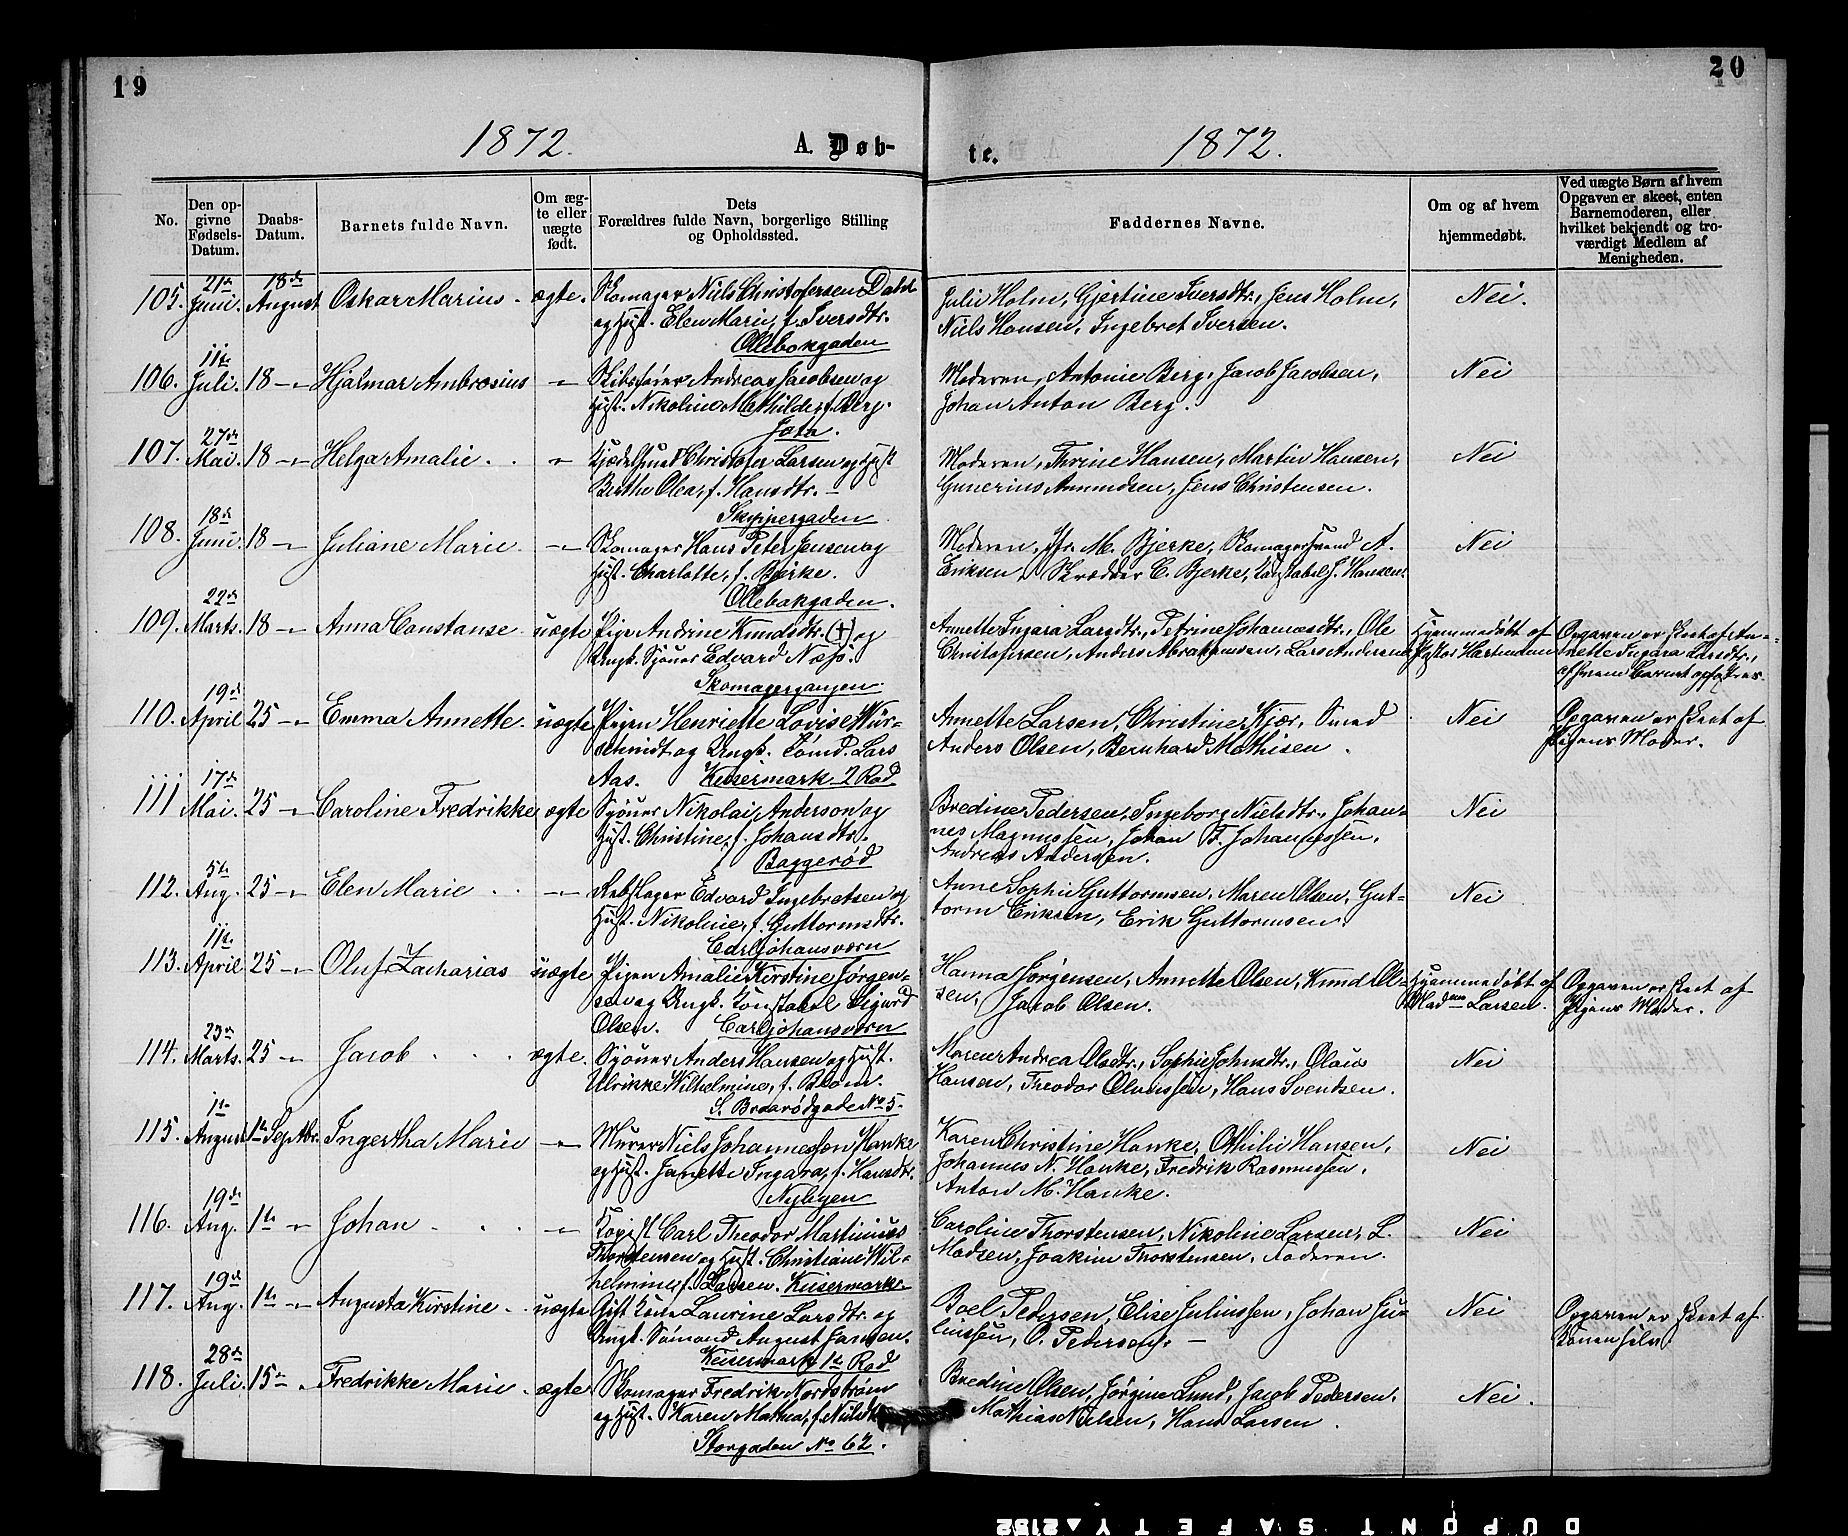 19
20
1872.
A. Døb-
te.
1872.
No.
Den op-
givne
Fødsels-
Datum.
Daabs-
Datum.
Barnets fulde Navn.
Om æg-
te eller
uægte
født.
Dets
Forældres fulde Navn, borgerlige Stilling
og Opholdssted.
Faddernes Navne.
Om og af hvem
hjemmedøbt.
Ved uægte Børn af hvem
Opgaven er skeet, enten
Barnemoderen, eller
hvilket bekjendt og tro-
værdigt Medlem af
Menigheden.
105. 21de Juni. 18de August Oskar Marius. ægte. Skomager Niels Christofersen Dahl
og Hust. Elen Marie, f. Iversdtr.
Ollebakgaden
Julie Holm, Gjertine Iversdtr., Jens Holm,
Niels Hansen, Ingebret Iversen.
Nei.
106. 11te Juli. 18 -„- Hjalmar Ambrosius -„- Skibsfører Andreas Jacobsen og
Hust. Nikoline Mathilde, f. Berg.
Moderen, Antonie Berg, Jacob Jacobsen,
Johan Anton Berg.
Nei
107. 27de Mai. 18 -„- Helga Amalie. „ Christofer Larsen og Hust
Berthe Olea, f. Hansdtr. –
Skippergaden
Moderen, Thrine Hansen, Martin Hansen,
Gunerius Amundsen, Jens Christensen.
Nei
108. 18de Juni. 18 -„- Juliane Marie. -„- Skomager Hans Peter Jensen og
Hust. Charlotte, f. Bjerke.
Ollebakgaden.
Moderen, Jfr. M. Bjerke, Skomagersvend A.
Eriksen, Skrædder C. Bjerke, Konstabel J. Hansen.
Nei
109. 22de Marts. 18 -„- Anna Constanse. uægte Pige Andrine Knudsdtr. (+) og
Ungk. Sjöuer Edvard Næsø.
Skomagergangen.
Annette Ingara Larsdtr., Petrine Johannesdtr., Ole
Christofersen, Anders Abrahamsen, Lars Andersen
Hjemmedøbt af
Pastor
Opgaven er skeet af An-
nette Ingara Larsdtr.,
af hvem Barnet opfødes.
110. 19de April 25 -„- Emma Annette. uægte Pigen Henriette Lovise Wür-
schmidt og Ungk. Tömd. Lars
Aas. Keisermark 2 Rad
Annette Larsen, Christine Kjær, Smed
Anders Olsen, Bernhard Mathisen.
Nei
Opgaven er skeet af
Pigens Moder.
111 17de Mai. 25 -„- Caroline Fredrikke ægte Sjöuer Nikolai Anderson og
Hust. Christine, f. Johansdtr.
Baggerød
Bredine Pedersen, Ingeborg Nielsdtr., Johan-
nes Magnussen, Johan F. Johannessen,
Andreas Andersen.
Nei
112. 5te Aug. 25 -„- Elen Marie -„- Rebslager Edvard Ingebretsen og
Hust. Nikoline, f. Guttormsdtr.
Carljohansværn
Anne Sophie Guttormsen, Maren Olsen, Gut-
torm Eriksen, Erik Guttormsen.
Nei
113. 11te April 25 -„- Oluf Zacharias uægte Pigen Amalie Kirstine Jørgen-
sen og Ungk. Konstabel Sigurd
Olsen. Carljohansværn
Hanna Jørgensen, Annette Olsen, Knud Ol-
sen, Jacob Olsen.
Hjemmedøbt af
Madme Larsen.
Opgaven er skeet af
Pigens Moder.
114. 23de Marts. 25 -„- Jacob ægte. Sjöuer Anders Hansen og Hust.
Ulrikke Wilhelmine, f. Blom.
S. Braarödgade No 5.
Maren Andrea Olsdtr., Sophie Johnsdtr., Olaus
Hansen, Theodor Olaussen, Hans Svendsen.
Nei
115. 1te August 1te Septbr. Ingertha Marie -„- Murer Niels Johannesson Hanke
og Hust. Janette Ingara, f. Hansdtr.
Nybyen
Karen Christine Hanke, Othilie Hansen,
Johannes N. Hanke, Fredrik Rasmussen,
Anton M. Hanke.
Nei
116. 19de Aug. 1te -„- Johan -„- Kopist Carl Theodor Martinius
Thorstensen og Hust. Christiane Wil-
helmine, f. Larsen. Keisermark.
Caroline Thorstensen, Nikoline Larsen, L.
Madsen, Joakim Thorstensen, Faderen.
Nei
117. 19de Aug. 1te -„- Augusta Kirstine. uægte Gift Kone Laurine Larsdtr. og
Ungk. Sömand August Jansen.
Keisermark 1te Rad
Boel Pedersen, Elise Juliussen, Johan Ju-
liussen, O. Pedersen. –
Nei
Opgaven er skeet af
Konen selv.
118. 28de Juli. 15de -„- Fredrikke Marie. ægte Skomager Fredrik Nordstrøm
og Hust. Karen Mathea, f. Nielsdtr.
Storgaden No 62.
Bredine Olsen, Jörgine Lund, Jacob Pedersen.
Mathias Nielsen, Hans Larsen.
Nei.
DUPONT SAFETY 2152